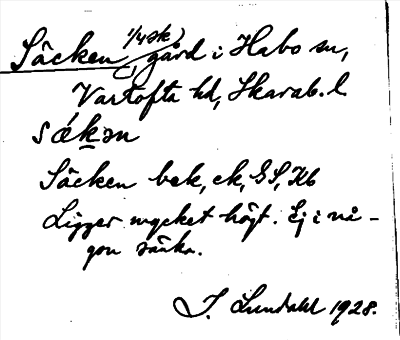 Säcken, 1/4 sk) gård i Habo sn,
Vartofta hd, Skarab. l.
sák̠ən
Säcken bek, ek, GS, Kb
Ligger mycket högt. Ej i nå-
gon sänka.
J. Lundahl 1928.